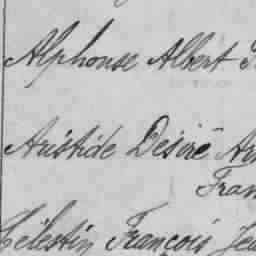 Alphonse Albert
Aristide Désiré Ar
Fran
Célestin François Je